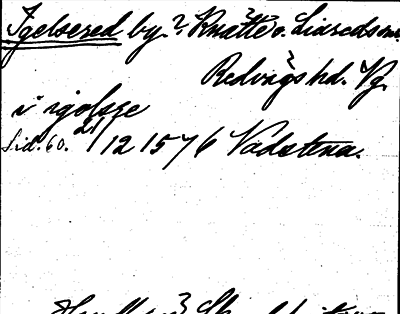 Igelsered by? Knätte o. Liareds sn.
Redvägs hd. Vg.
i igolsze
Lid. 60. 21/12 1576 Vadstena.